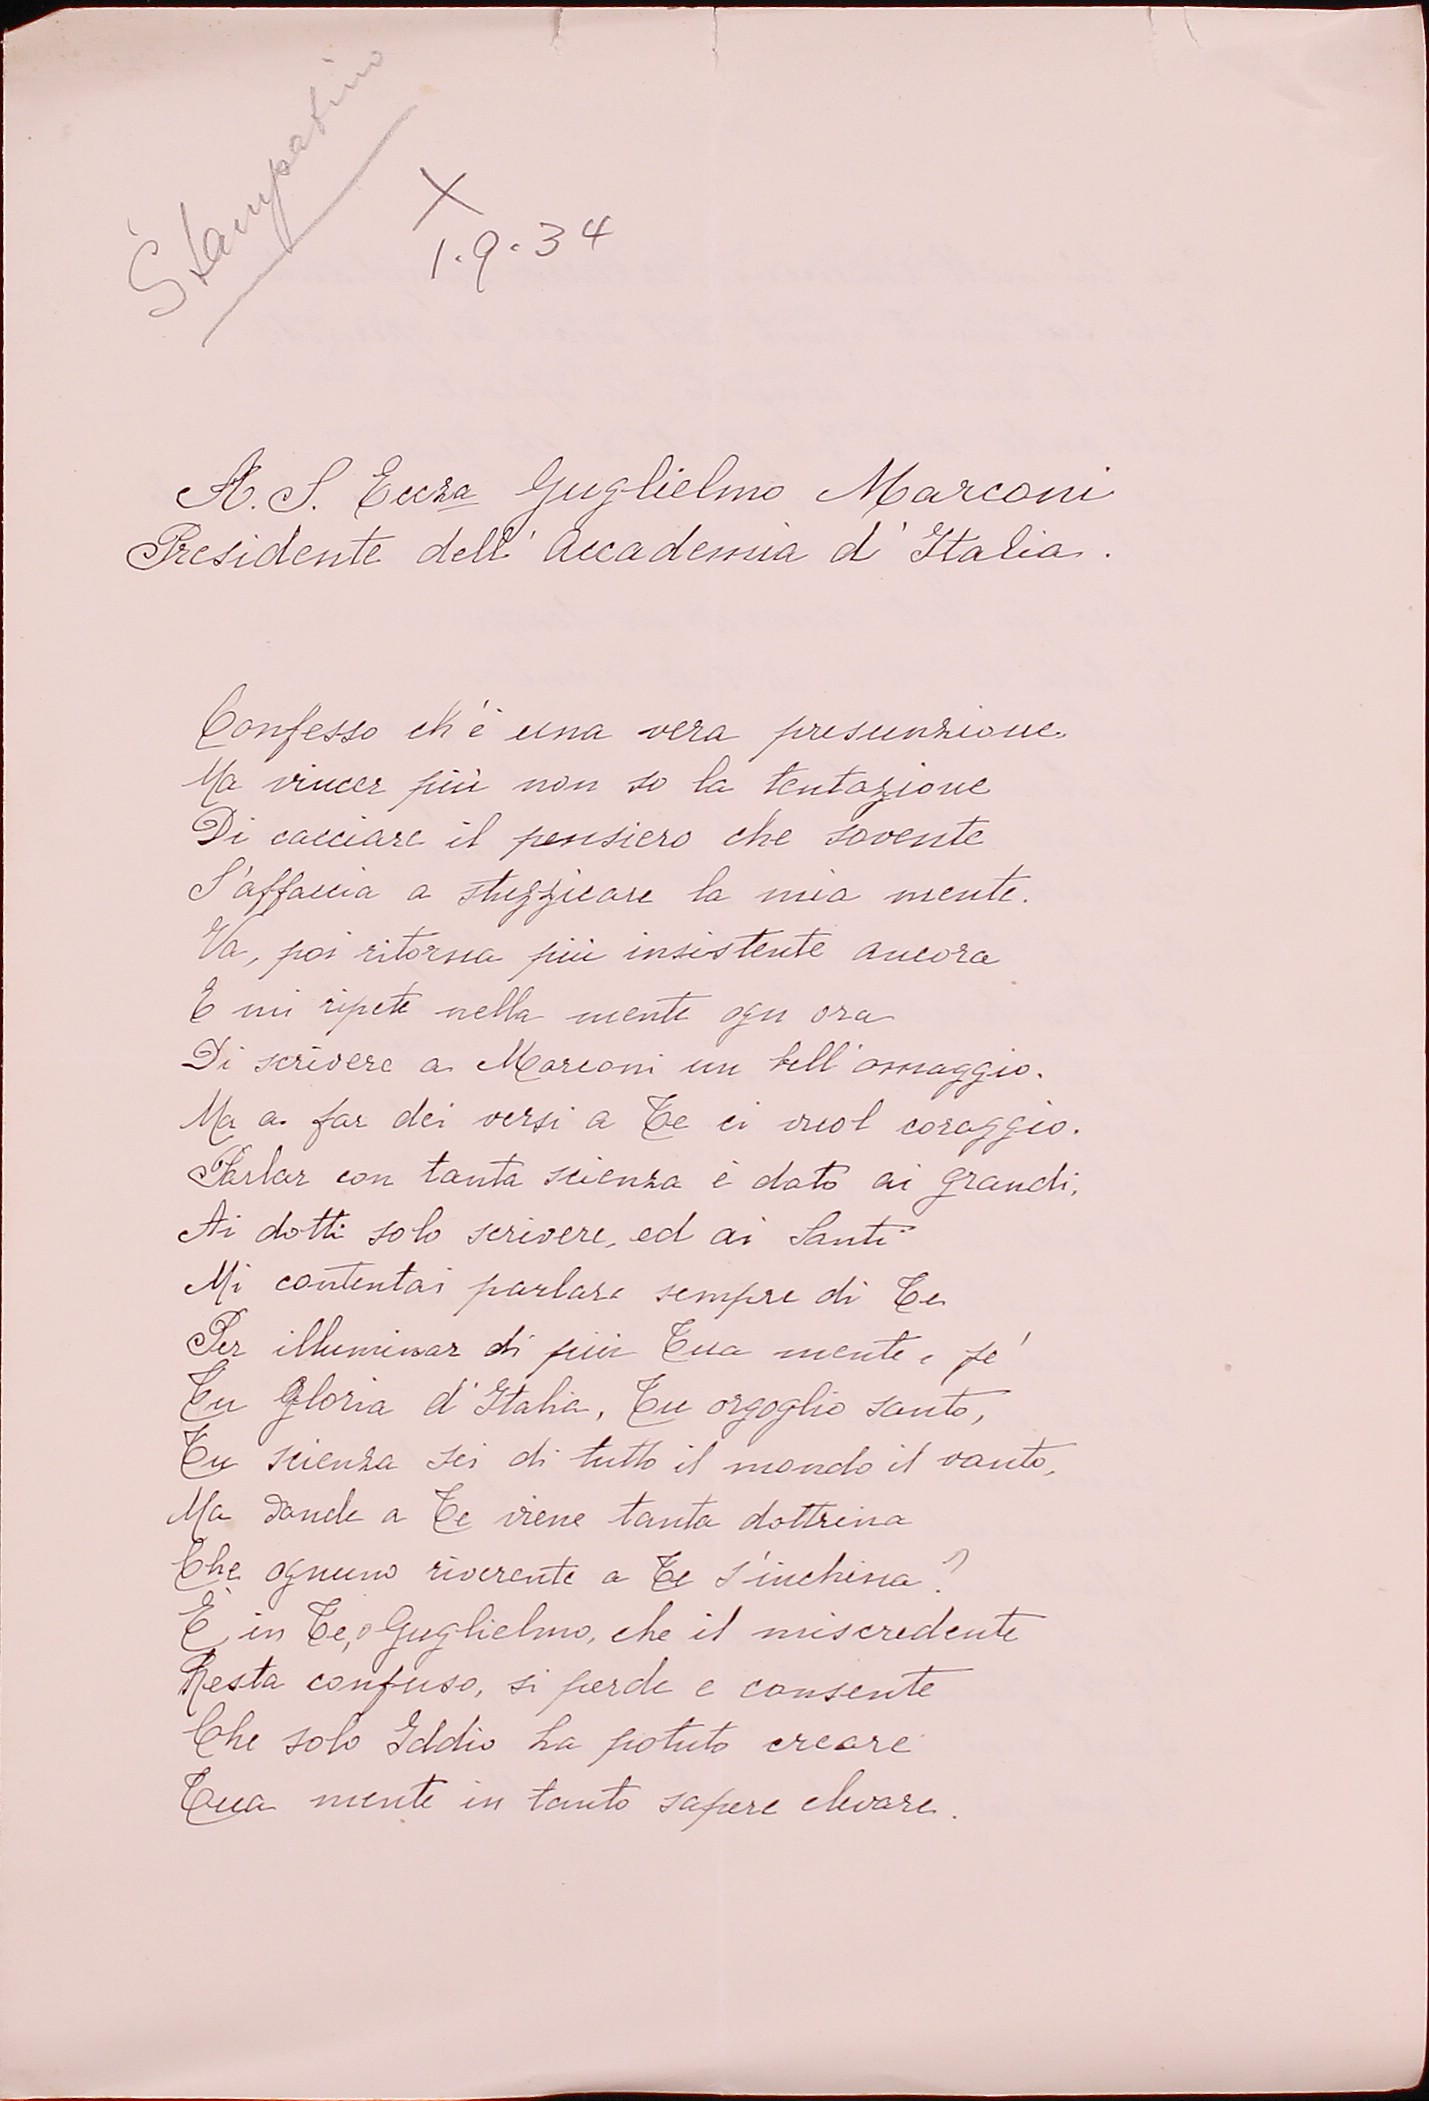 Stampatino
X
1.9.34
A. S. Eccza Guglielmo Marconi
Presidente dell' Accademia d' Italia.
Confesso ch'è una vera presunzione
Ma vincer più non so la tentazione
Di cacciare il pensiero che sovente
S'affaccia a stuzzicare la mia mente.
Va, poi ritorna più insistente ancora
E mi ripete nella mente ogn ora
Di scrivere a Marconi un bell'omaggio.
Ma a far dei versi a Te ci vuol coraggio.
Parlar con tanta scienza è dato ai grandi,
Ai dotti solo scrivere, ed ai Santi
Mi contentai parlare sempre di Te
Per illuminar di più Tua mente e fe'
Tu Gloria d'Italia, Tu orgoglio santo,
Tu scienza sei di tutto il mondo il vanto,
Ma donde a Te viene tanta dottrina
Che ognuno riverente a Te s'inchina?
È in Te, o Guglielmo, che il miscredente
Resta confuso, si perde e consente
Che solo Iddio ha potuto creare
Tua mente in tanto sapere elevare.